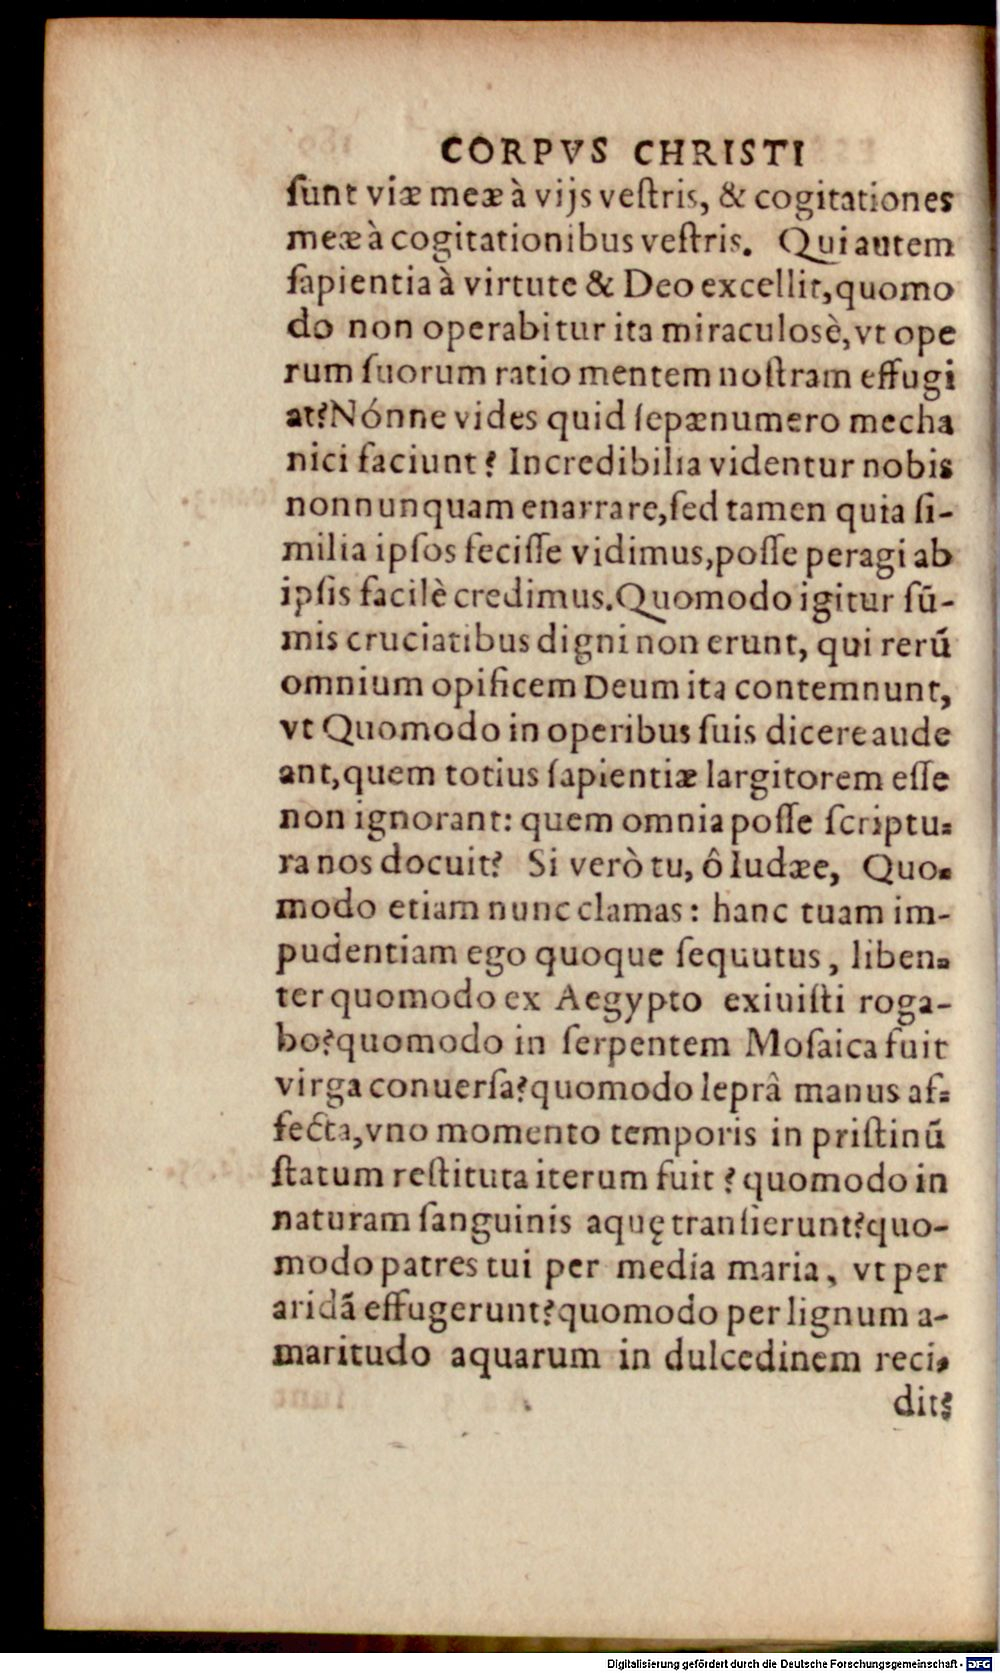 CORPVS CHRISTI
ſunt viæ meæ à vijs veſtris, & cogitationes
meæ à cogitationibus veſtris. Qui autem
ſapientia à virtute & Deo excellit, quomo
do non operabitur ita miraculosè, vt ope
rum ſuorum ratio mentem noſtram effugi
at? Nónne vides quid ſepænumero mecha
nici faciunt? Incredibilia videntur nobis
nonnunquam enarrare, ſed tamen quia ſi-
milia ipſos feciſſe vidimus, poſſe peragi ab
ipſis facilè credimus. Quomodo igitur ſū-
mis cruciatibus digni non erunt, qui rerū
omnium opificem Deum ita contemnunt,
vt Quomodo in operibus ſuis dicere aude
ant, quem totius ſapientiæ largitorem eſſe
non ignorant: quem omnia poſſe ſcriptu-
ra nos docuit? Si verò tu, ô Iudæe, Quo-
modo etiam nunc clamas: hanc tuam im-
pudentiam ego quoque ſequutus, liben-
ter quomodo ex Aegypto exiuiſti roga-
bo? quomodo in ſerpentem Moſaica fuit
virga conuerſa? quomodo leprâ manus af-
fecta, vno momento temporis in priſtinū
ſtatum reſtituta iterum fuit? quomodo in
naturam ſanguinis aquę tranſierunt? quo-
modo patres tui per media maria, vt per
aridā effugerunt? quomodo per lignum a-
maritudo aquarum in dulcedinem reci-
dit?
Digitalisierung gefördert durch die Deutsche Forschungsgemeinschaft - DFG